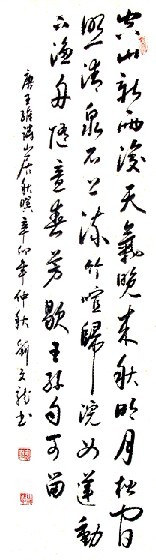 空山新雨後天氣晚来秋明月松间
照清泉石上流竹喧歸浣女蓮動
下漁舟随意春芳歇王孫自可留
唐王維詩山居秋暝辛卯年仲秋 文龍書